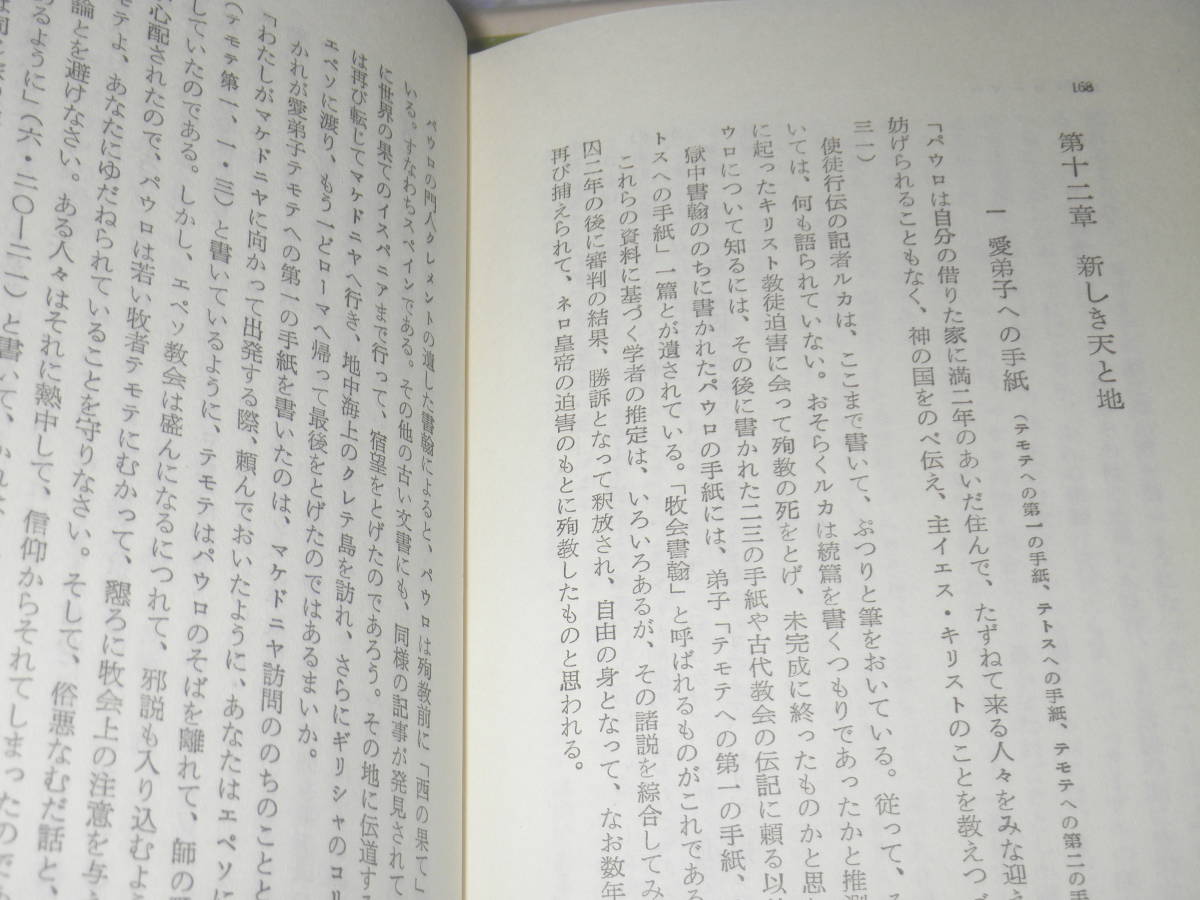 168
第十二章　新しき天と地
一　愛弟子への手紙　（テモテへの第一の手紙、テトスへの手紙、テモテへの第二の手
「パウロは自分の借りた家に満二年のあいだ住んで、たずねて来る人々をみな迎え
妨げられることもなく、神の国をのべ伝え、主イエス・キリストのことを教えつづ
三一）
使徒行伝の記者ルカは、ここまで書いて、ぷつりと筆をおいている。従って、そ
いては、何も語られていない。おそらくルカは続篇を書くつもりであったかと推測
に起ったキリスト教徒迫害に会って殉教の死をとげ、未完成に終ったものかと思
ウロについて知るには、その後に書かれた二三の手紙や古代教会の伝記に頼る以
獄中書翰ののちに書かれたパウロの手紙には、弟子「テモテへの第一の手紙、
トスへの手紙」一篇とが遺されている。「牧会書翰」と呼ばれるものがこれである
これらの資料に基づく学者の推定は、いろいろあるが、その諸説を綜合してみ
囚二年の後に審判の結果、勝訴となって釈放され、自由の身となって、なお数年
再び捕えられて、ネロ皇帝の迫害のもとに殉教したものと思われる。
パウロの門人クレメントの遺した書翰によると、パウロは殉教前に「西の果て」
いる。すなわちスペインである。その他の古い文書にも、同様の記事が発見されて
に世界の果てのイスペニアまで行って、宿望をとげたのであろう。その地に伝道す
は再び転じてマケドニヤへ行き、地中海上のクレテ島を訪れ、さらにギリシャのコリ
エペソに渡り、もう一どローマへ帰って最後をとげたのではあるまいか。
かれが愛弟子テモテへの第一の手紙を書いたのは、マケドニヤ訪問ののちのこと
「わたしがマケドニヤに向かって出発する際、頼んでおいたように、あなたはエペソに
（テモテ第一、一・三）と書いているように、テモテはパウロのそばを離れて、師の
していたのである。しかし、エペソ教会は盛んになるにつれて、邪説も入り込むよう
心配されたので、パウロは若い牧者テモテにむかって、懇ろに牧会上の注意を与え
モテよ、あなたにゆだねられていることを守りなさい。そして、俗悪なむだ話と、
論とを避けなさい。ある人々はそれに熱中して、信仰からそれてしまったのであ
るように」（六・二〇―二一）と書いて、かれ